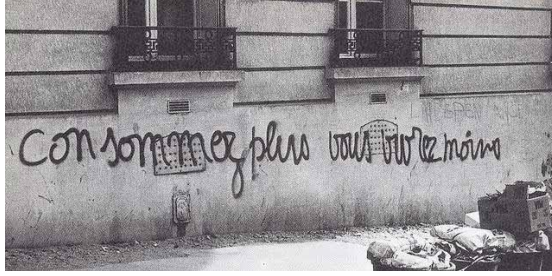 consommez plus vous vivrez moins